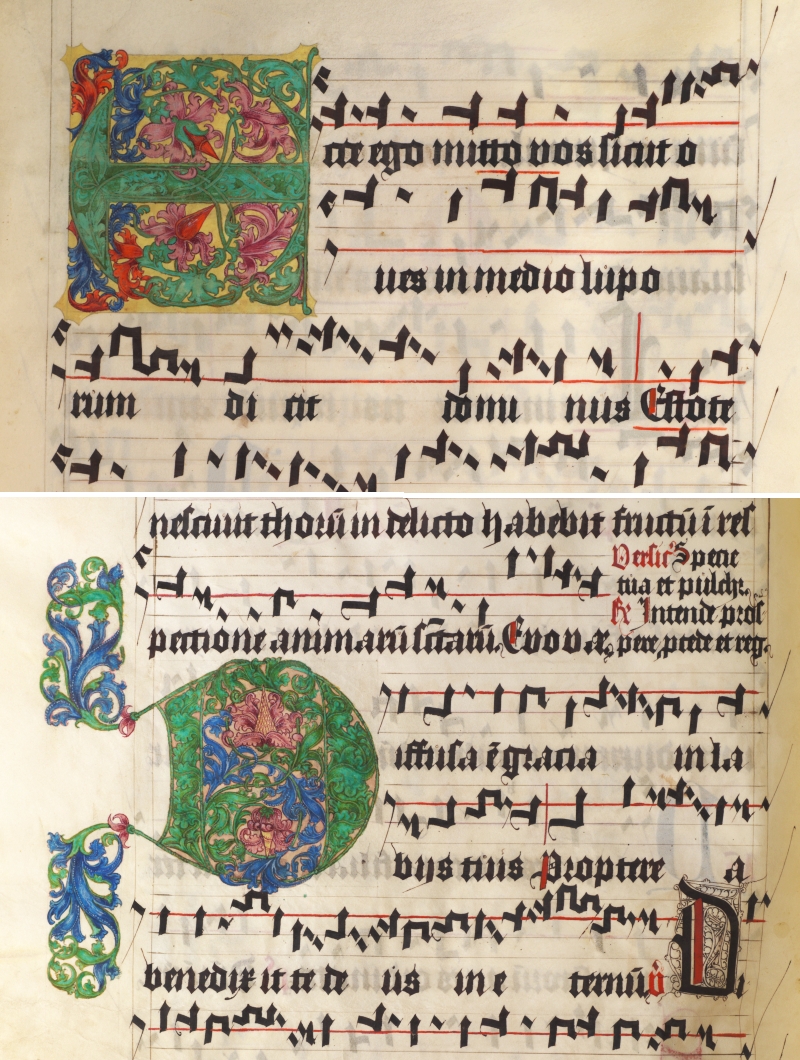 Ecce ego mitto vos sicut o
ues in medio lupo
rum di cit domi nus Estote
nesciuit thorū in delicto habebit fructū ī res
Versic' Specie
tua et pulchr.
R Intende pros
pectione animarū sctārū, Evovae, pere, pcede et reg.
Diffusa ē gracia in la
bijs tuis Proptere a
benedix it te de us in e ternū v̊ Di